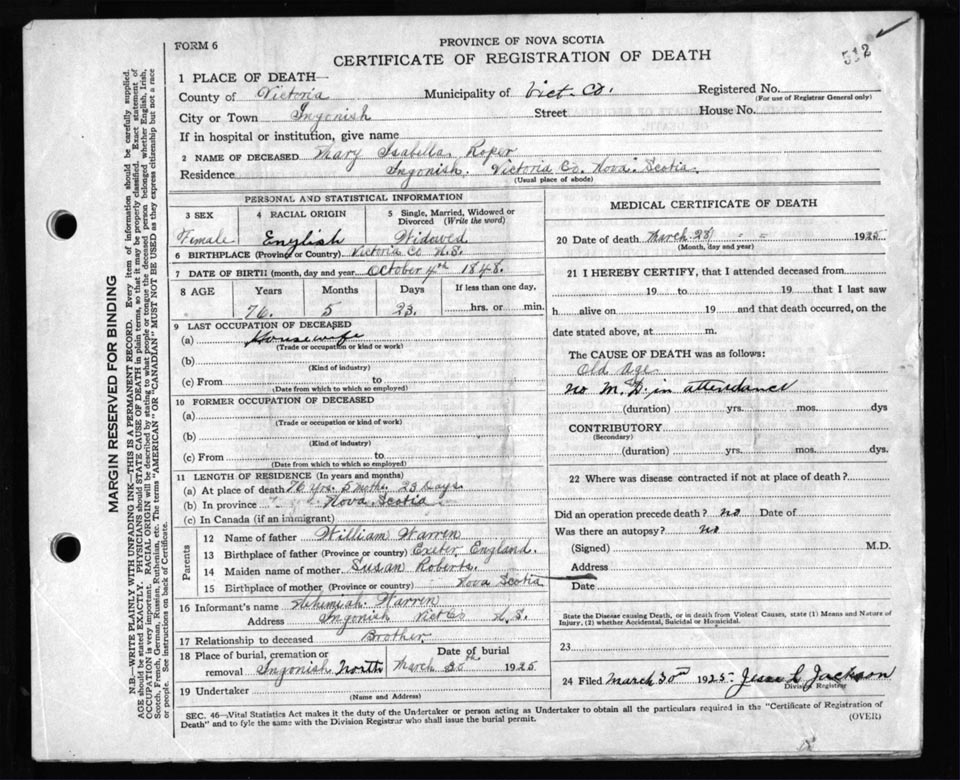 512
FORM 6
PROVINCE OF NOVA SCOTIA
CERTIFICATE OF REGISTRATION OF DEATH
1 PLACE OF DEATH—
County of Victoria Municipality of Vict Co. Registered No.
(For use of Registrar General only)
City or Town Ingonish Street House No.
If in hospital or institution, give name
2 NAME OF DECEASED Mary Isabella Roper
Residence Ingonish. Victoria Co, Nova Scotia.
(Usual place of abode)
PERSONAL AND STATISTICAL INFORMATION
3 SEX 4 RACIAL ORIGIN 5 Single, Married, Widowed or Divorced (Write the word)
Female English Widowed
6 BIRTHPLACE (Province or Country) Victoria Co N.S.
7 DATE OF BIRTH (month, day and year) October 4th 1848.
8 AGE Years Months Days If less than one day,
76. 5 23. hrs. or min.
9 LAST OCCUPATION OF DECEASED
(a) Housewife
(Trade or occupation or kind or work)
(b)
(Kind of industry)
(c) From to
(Date from which to which so employed)
10 FORMER OCCUPATION OF DECEASED
(a)
(Trade or occupation or kind of work)
(b)
(Kind of industry)
(c) From to
(Date from which to which so employed)
11 LENGTH OF RESIDENCE (In years and months)
(a) At place of death 76 yrs. 5 moths 23 Days.
(b) In province Nova Scotia
(c) In Canada (if an immigrant)
Parents
12 Name of father William Warren
13 Birthplace of father (Province or country) Exeter England.
14 Maiden name of mother Susan Roberts.
15 Birthplace of mother (Province or country) Nova Scotia
16 Informant's name Nehmiah Warren
Address Ingonish Vict Co N.S.
17 Relationship to deceased Brother
18 Place of burial, cremation or removal Ingonish North Date of burial March 30th 1925
19 Undertaker
(Name and Address)
MEDICAL CERTIFICATE OF DEATH
20 Date of death March 28 1925
(Month, day and year)
21 I HEREBY CERTIFY, that I attended deceased from
19 to 19 that I last saw
h alive on 19 and that death occurred, on the
date stated above, at m.
The CAUSE OF DEATH was as follows:
Old Age
no M.D. in attendance
(duration) yrs. mos. dys
CONTRIBUTORY
(Secondary)
(duration) yrs. mos. dys.
22 Where was disease contracted if not at place of death?
Did an operation precede death? no Date of
Was there an autopsy? no
(Signed) M.D.
Address
Date
State the Disease causing Death, or in death from Violent Causes, state (1) Means and Nature of
Injury, (2) whether Accidental, Suicidal or Homicidal.
23
24 Filed March 30th 1925 Jesse L Jackson
Division Registrar
SEC. 46—Vital Statistics Act makes it the duty of the Undertaker or person acting as Undertaker to obtain all the particulars required in the "Certificate of Registration of
Death" and to fyle the same with the Division Registrar who shall issue the burial permit.
(OVER)
MARGIN RESERVED FOR BINDING
N.B.—WRITE PLAINLY WITH UNFADING INK—THIS IS A PERMANENT RECORD. Every item of information should be carefully supplied.
AGE should be stated EXACTLY. PHYSICIANS should STATE CAUSE OF DEATH in plain terms, so that it may be properly classified. Exact statement of
OCCUPATION is very important. RACIAL ORIGIN will be described by stating to what people or tongue the deceased person belonged whether English, Irish,
Scotch, French, German, Russian, Ruthenian, etc. The terms "AMERICAN" OR "CANADIAN" MUST NOT BE USED as they express citizenship but not a race
or people. See instructions on back of Certificate.